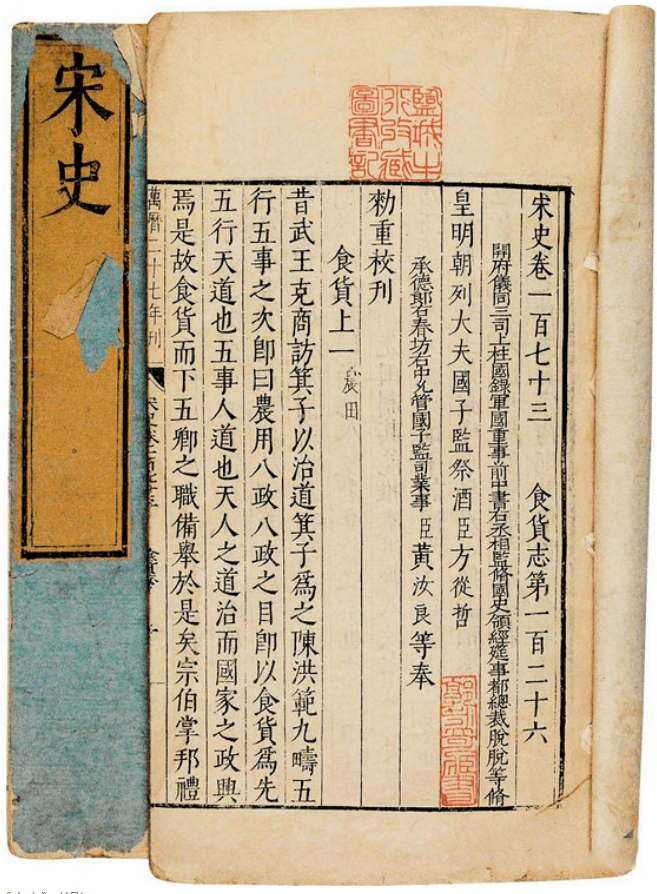 宋史
宋史卷一百七十三　食貨志第一百二十六
開府儀同三司上柱國錄軍國重事前中書右丞相監修國史領經筵事都總裁脫脫等修
皇明朝列大夫國子監祭酒臣方從哲
承德郎右春坊右中允管國子監司業事臣黃汝良等奉
勑重校刊
食貨上一 農田
昔武王克商訪箕子以治道箕子爲之陳洪範九疇五
行五事之次卽曰農用八政八政之目卽以食貨爲先
五行天道也五事人道也天人之道治而國家之政興
焉是故食貨而下五卿之職備舉於是矣宗伯掌邦禮
萬曆二十七年刊
宋史卷一百七十三